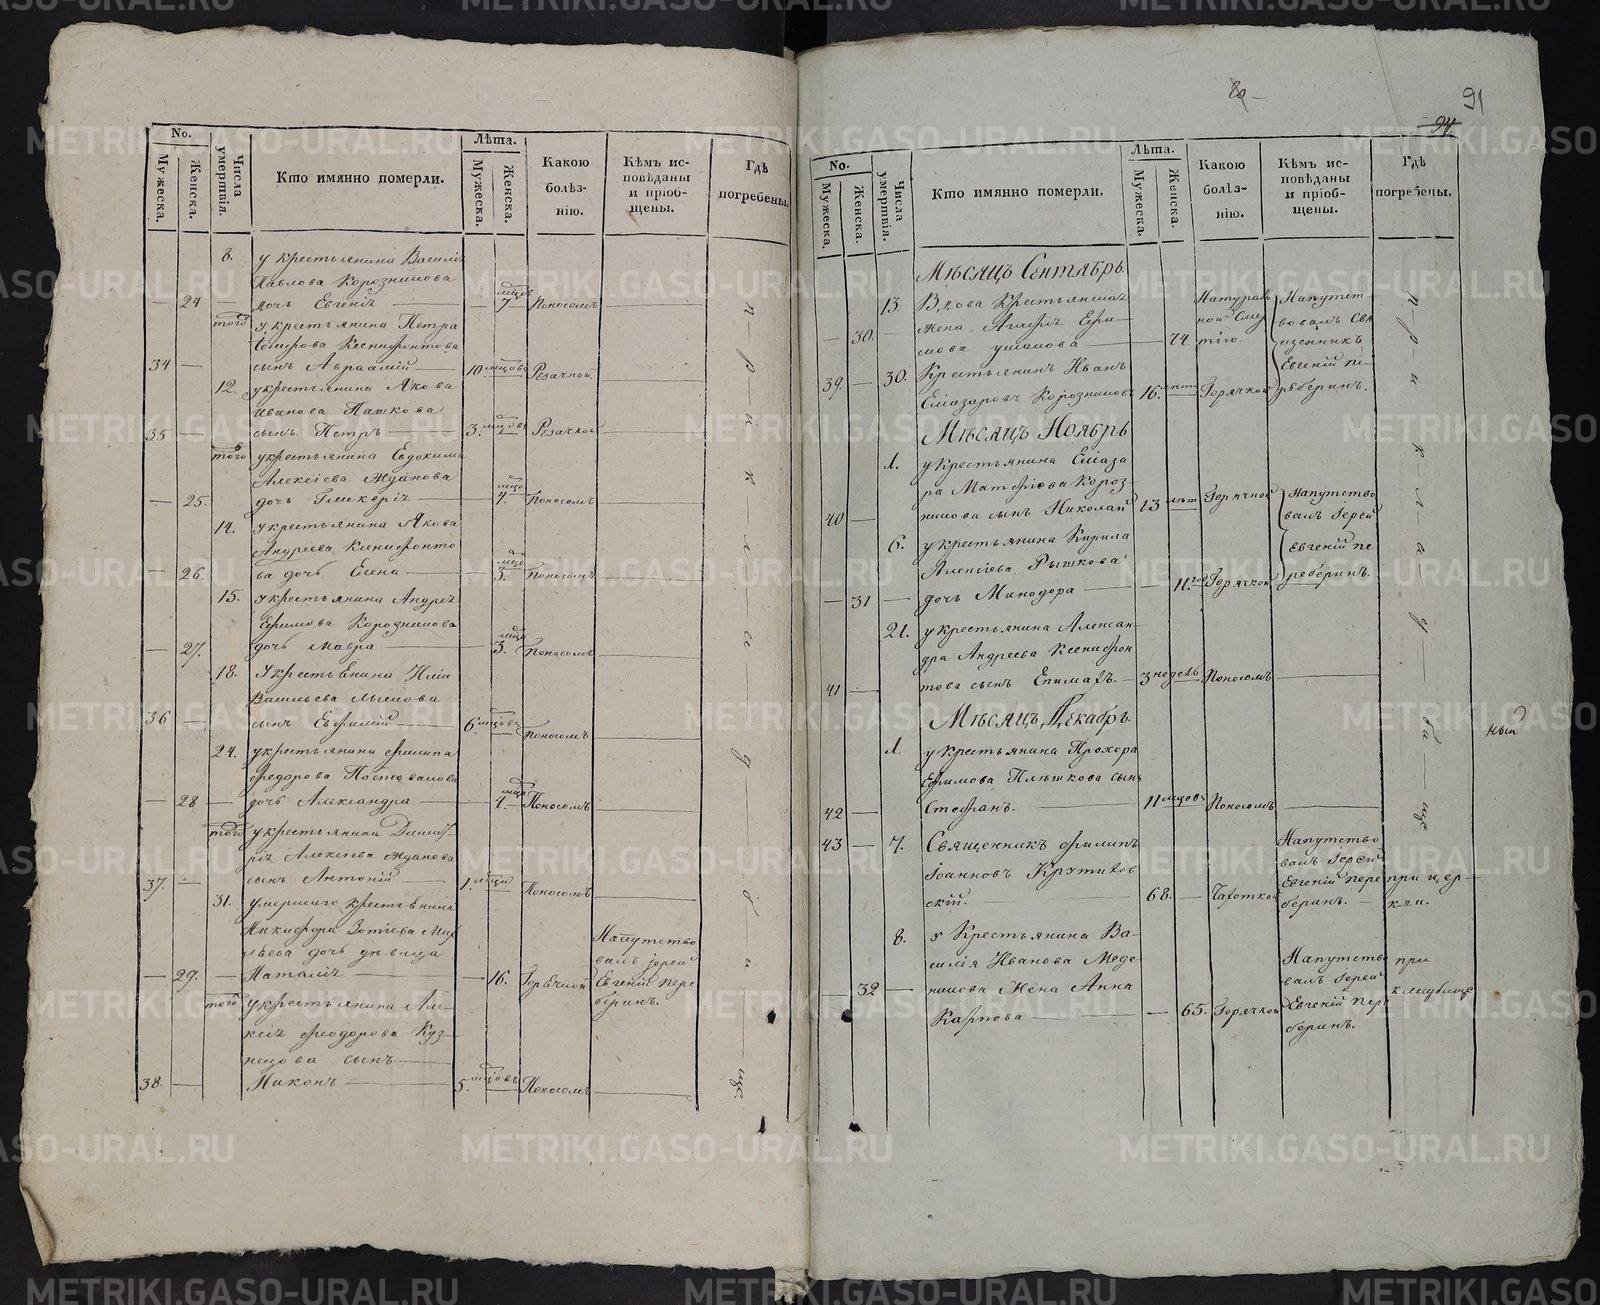 No.
Мужеска.
Женска.
Числа умертвія.
Кто имянно померли.
Лѣта.
Мужеска.
Женска.
Какою болѣз-
нію.
Кѣмъ ис-
повѣданы
и пріоб-
щены.
Гдѣ
погребены.
8. у крестьянина Василія
Павлова Корозникова
24 дочь Евгенія 7 мцовъ Поносомъ
того у крестьянина Петра
Ксенофонтова
34 сынъ Авраамій 10 мцовъ Резачкой
12. у крестьянина Якова
Иванова Пашкова
35 сынъ Петръ 3. мцовъ Резачкой
того у крестьянина Евдокима
Алексіева Жданова
25. дочь Гликерія 4. мцо Поносомъ
14. у крестьянина Якова
Андреева Ксенофонто
26. ва дочь Елена 3. мцо Поносомъ
15. у крестьянина Андрея
Ефимова Корозникова
27. дочь Мавра 3. мцо Поносомъ
18. у крестьянина Иліи
Васильева
36 сынъ Евфимій 6. мцовъ Поносомъ
24. у крестьянина Филипа
Федорова Постовалова
28 дочь Александра 4. мцо Поносомъ
того у крестьянина Димит-
рія Алексіева Жданова
37. сынъ Антоній 1. мцъ Поносомъ
31. умершаго крестьянина
Никифора Зотіева Мих
дочь дѣвица
29. Наталія 16. Горячкой
Напутство
валъ іерей
Евгеній Пере
беринъ.
того у крестьянина Але-
ксія Феодорова Куз-
нецова сынъ
38. Никонъ 5. мцовъ Поносомъ
при кладбище
91
94
No.
Мужеска.
Женска.
Числа умертвія.
Кто имянно померли.
Лѣта.
Мужеска.
Женска.
Какою
болѣз-
нію.
Кѣмъ ис-
повѣданы
и пріоб-
щены.
Гдѣ
погребены.
Мѣсяцъ Сентябрь.
13. Вдова Крестьянская
30. жена Агафія Ефи-
мова Ушакова 74. Натураль
ной смер
тію.
Напутст
вовалъ Свя
щенникъ
Евгеній Пе
реберинъ.
39. 30. Крестьянинъ Иванъ
Елиазаровъ Корозниковъ 16. лѣтъ Горячкой
Мѣсяцъ Ноябрь
1. у крестьянина Елиаза
ра Матфіова Короз-
40 никова сынъ Николай 13 лѣт Горячкой
Напутство
валъ Іерей
Евгеній Пе
реберинъ.
6. у крестьянина Кирила
Алексіева Рышкова
31 дочь Минодора 11. год Горячкой
21. у крестьянина Алексан-
дра Андреева Ксенофон
41 това сынъ Епимахъ. 3 недель Поносомъ
Мѣсяцъ Декабрь.
1. у крестьянина Прохора
Ефимова Плѣшкова сынъ
42 Стефанъ. 11 мцовъ Поносомъ
43 7. Священникъ Филипъ
Іоанновъ Крутиков
скій. 68. Чахоткой
Напутство
валъ Іерей
Евгеній Пере
беринъ.
при цер-
кви.
8. у Крестьянина Ва-
силія Иванова Меде
32 никова Жена Анна
Карпова 65. Горячкой
Напутство
валъ Іерей
Евгеній Пере
беринъ.
при
кладбище
при кладбище
ный
METRIKI.GASO-URAL.RU